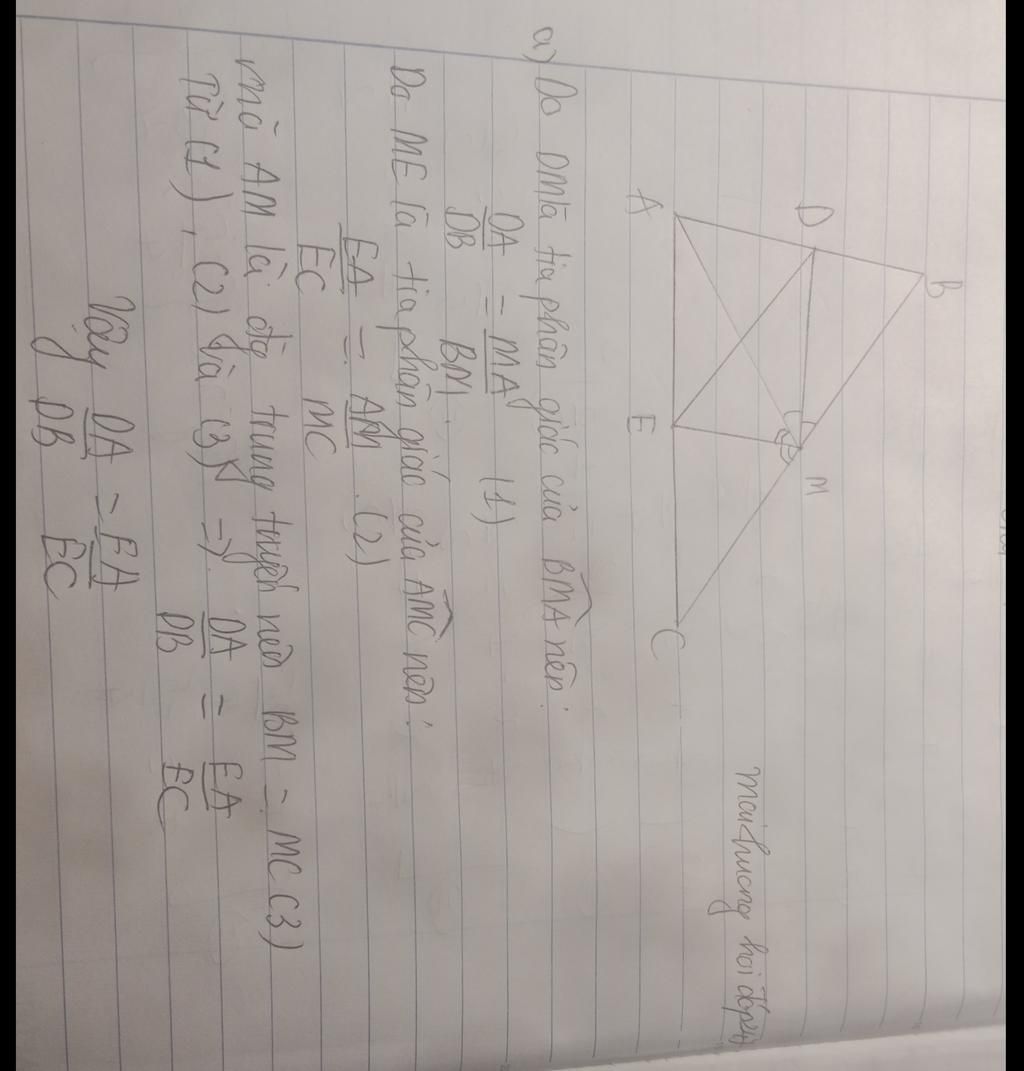 B
D
M
A
E
C
Maithuong hoi đáp
a) Do DM là tia phân giác của BMA nên:
DA/DB = MA/BM (1)
Do ME là tia phân giác của AMC nên:
EA/EC = AM/MC (2)
mà AM là đg trung tuyến nên BM = MC (3)
Từ (1), (2) và (3) => DA/DB = EA/EC
Vậy DA/DB = EA/EC